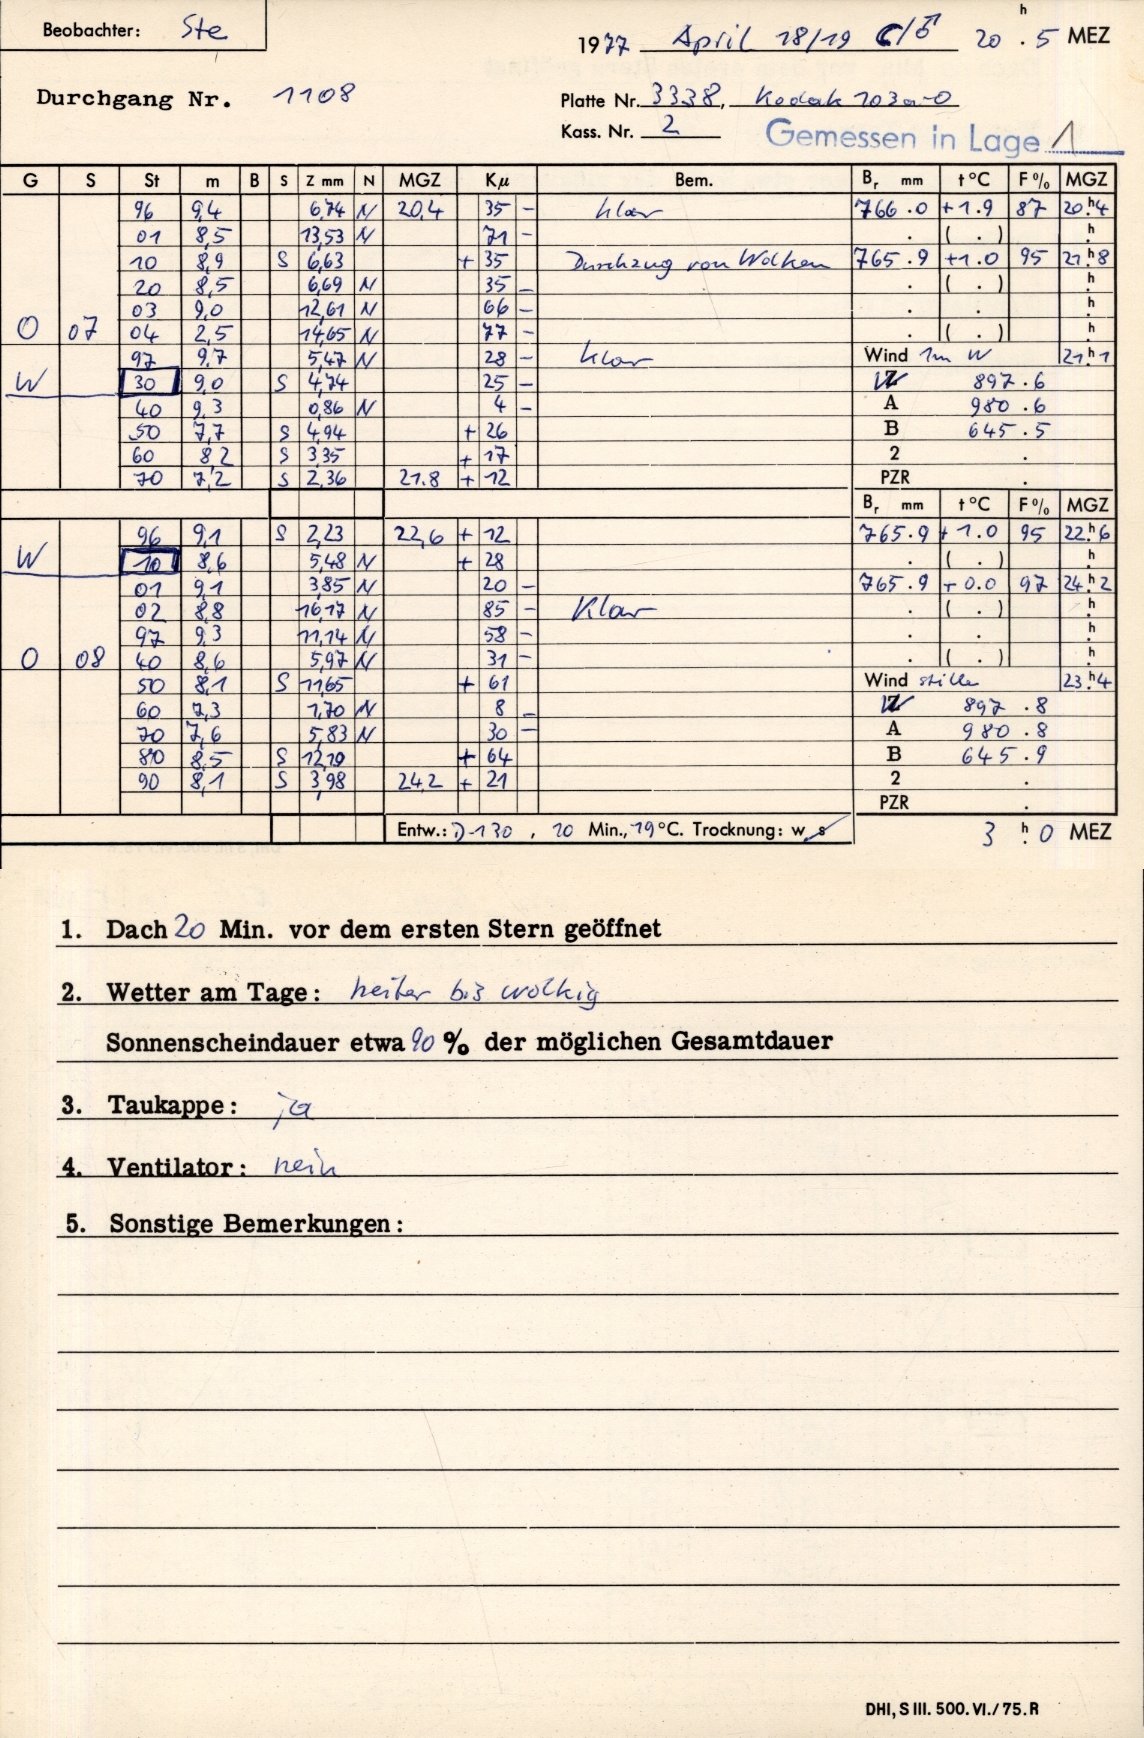 Beobachter: Ste
1977 April 18/19 ☾/♂ 20 h . 5 MEZ
Durchgang Nr. 1108
Platte Nr. 3338, Kodak 103a-0
Kass. Nr. 2
Gemessen in Lage 1
G S St m B S Z mm N MGZ Kμ Bem. Br mm t°C F% MGZ
96 9,4 6,74 N 20,4 35 – klar 766.0 +1.9 87 20h4
01 8,5 13,53 N 71 – . ( . ) h
10 8,9 S 6,63 + 35 Durchzug von Wolken 765.9 +1.0 95 21h8
20 8,5 6,69 N 35 – . ( . ) h
03 9,0 12,61 N 66 – . . h
O 07 04 2,5 14,65 N 77 – . ( . ) h
97 9,7 5,47 N 28 – klar Wind 1m W 21h1
W 30 9,0 S 4,74 25 – W 897.6
40 9,3 0,86 N 4 – A 980.6
50 7,7 S 4,94 + 26 B 645.5
60 8,2 S 3,35 + 17 2 .
70 7,2 S 2,36 21.8 + 12 PZR .
Br mm t°C F% MGZ
96 9,1 S 2,23 22,6 + 12 765.9 +1.0 95 22h6
W 10 8,6 5,48 N + 28 . ( . ) h
01 9,1 3,85 N 20 – 765.9 +0.0 97 24h2
02 8,8 16,17 N 85 – Klar . ( . ) h
97 9,3 11,14 N 58 – . . h
O 08 40 8,6 5,97 N 31 – . ( . ) h
50 8,1 S 11,65 + 61 Wind stille 23h4
60 7,3 1,70 N 8 – W 897.8
70 7,6 5,83 N 30 – A 980.8
80 8,5 S 12,19 + 64 B 645.9
90 8,1 S 3,98 24,2 + 21 2 .
PZR .
Entw.: D-130, 10 Min., 19°C. Trocknung: w s 3 h. 0 MEZ
1. Dach 20 Min. vor dem ersten Stern geöffnet
2. Wetter am Tage: heiter bis wolkig
Sonnenscheindauer etwa 90 % der möglichen Gesamtdauer
3. Taukappe: ja
4. Ventilator: nein
5. Sonstige Bemerkungen:
DHI, S III. 500. VI./75. R